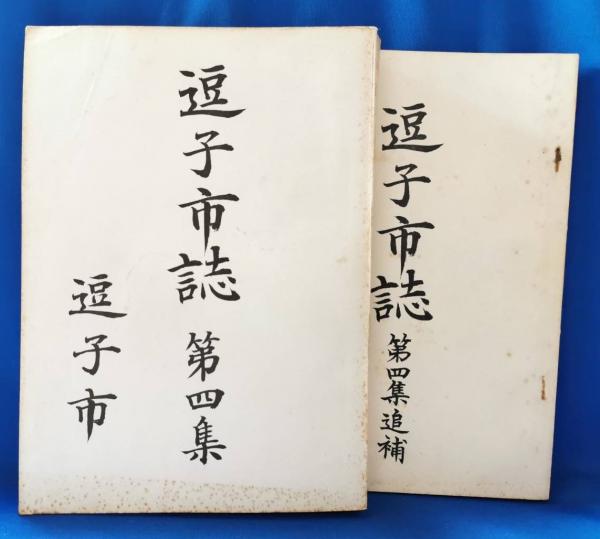 逗子市誌 第四集
逗子市
逗子市誌
第四集追補